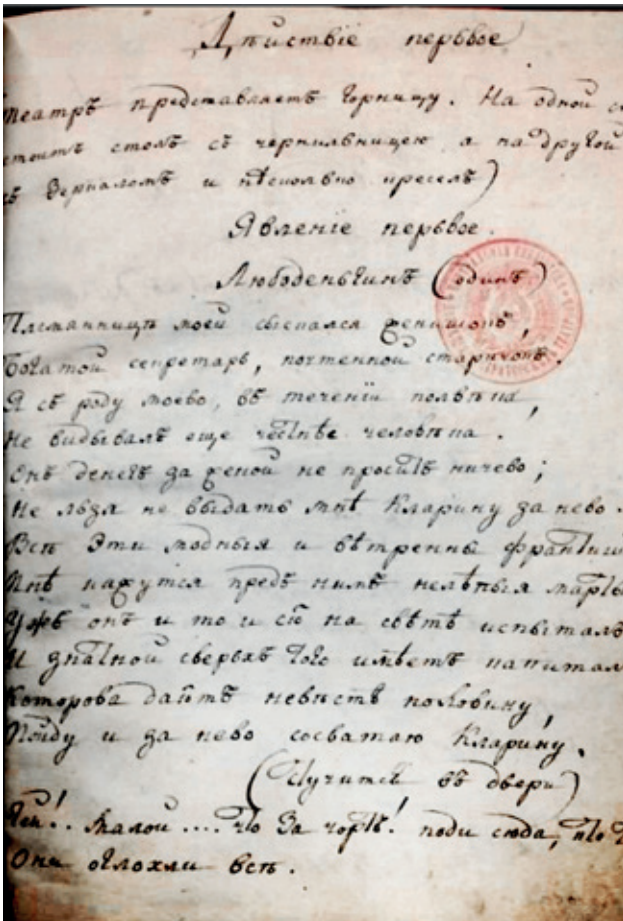 Дѣйствіе первое
Театръ представляетъ горницу. На одной с
стоитъ столъ съ чернильницею а на другой
съ зеркаломъ и нѣсколько креселъ)
Явленіе первое.
Любоденьгинъ (одинъ)
Племянницѣ моей сыскался женишокъ,
Богатой секретарь, почтенной старичокъ.
Я съ роду моево, въ теченіи полвѣка,
Не видывалъ еще честнѣе человѣка.
Онъ денегъ за женой не проситъ ничево;
Не льзя не выдать мнѣ Кларину за нево.
Всѣ эти модныя и вѣтренны франтиш
Мнѣ кажутся предъ нимъ нелѣпыя марты
Ужъ онъ и то и сіо на свѣтѣ испыталъ
И знатной сверьхъ того имѣетъ капитал
Которова даетъ невѣстѣ половину,
Пойду и за нево сосватаю Кларину.
(Стучится въ двери)
Гей!.. малой.... что за чортъ! поди сюда, кто
Они оглохли всѣ.